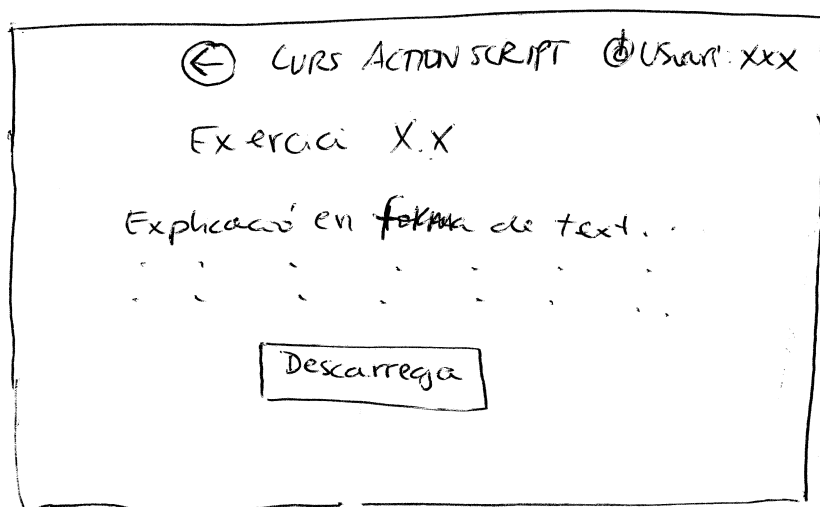 CURS ACTION SCRIPT Usuari: XXX
Exercici X.X
Explicació en forma de text...
Descarrega